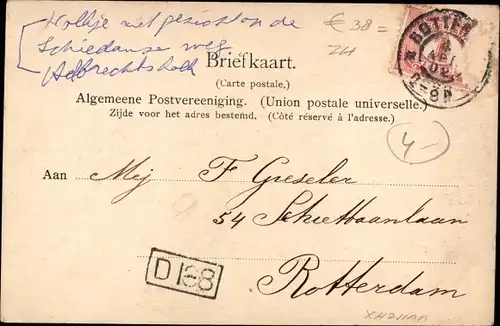 Holkje met gezicht on de
Schiedamse weg
Aelbrechtskolk
€ 38 =
ZH
ROTTERDAM
Briefkaart.
(Carte postale.)
Algemeene Postvereeniging. (Union postale universelle.)
Zijde voor het adres bestemd. (Côté réservé à l'adresse.)
4-
Aan Mej F Greseler
54 Schietbaanlaan
Rotterdam
D 188